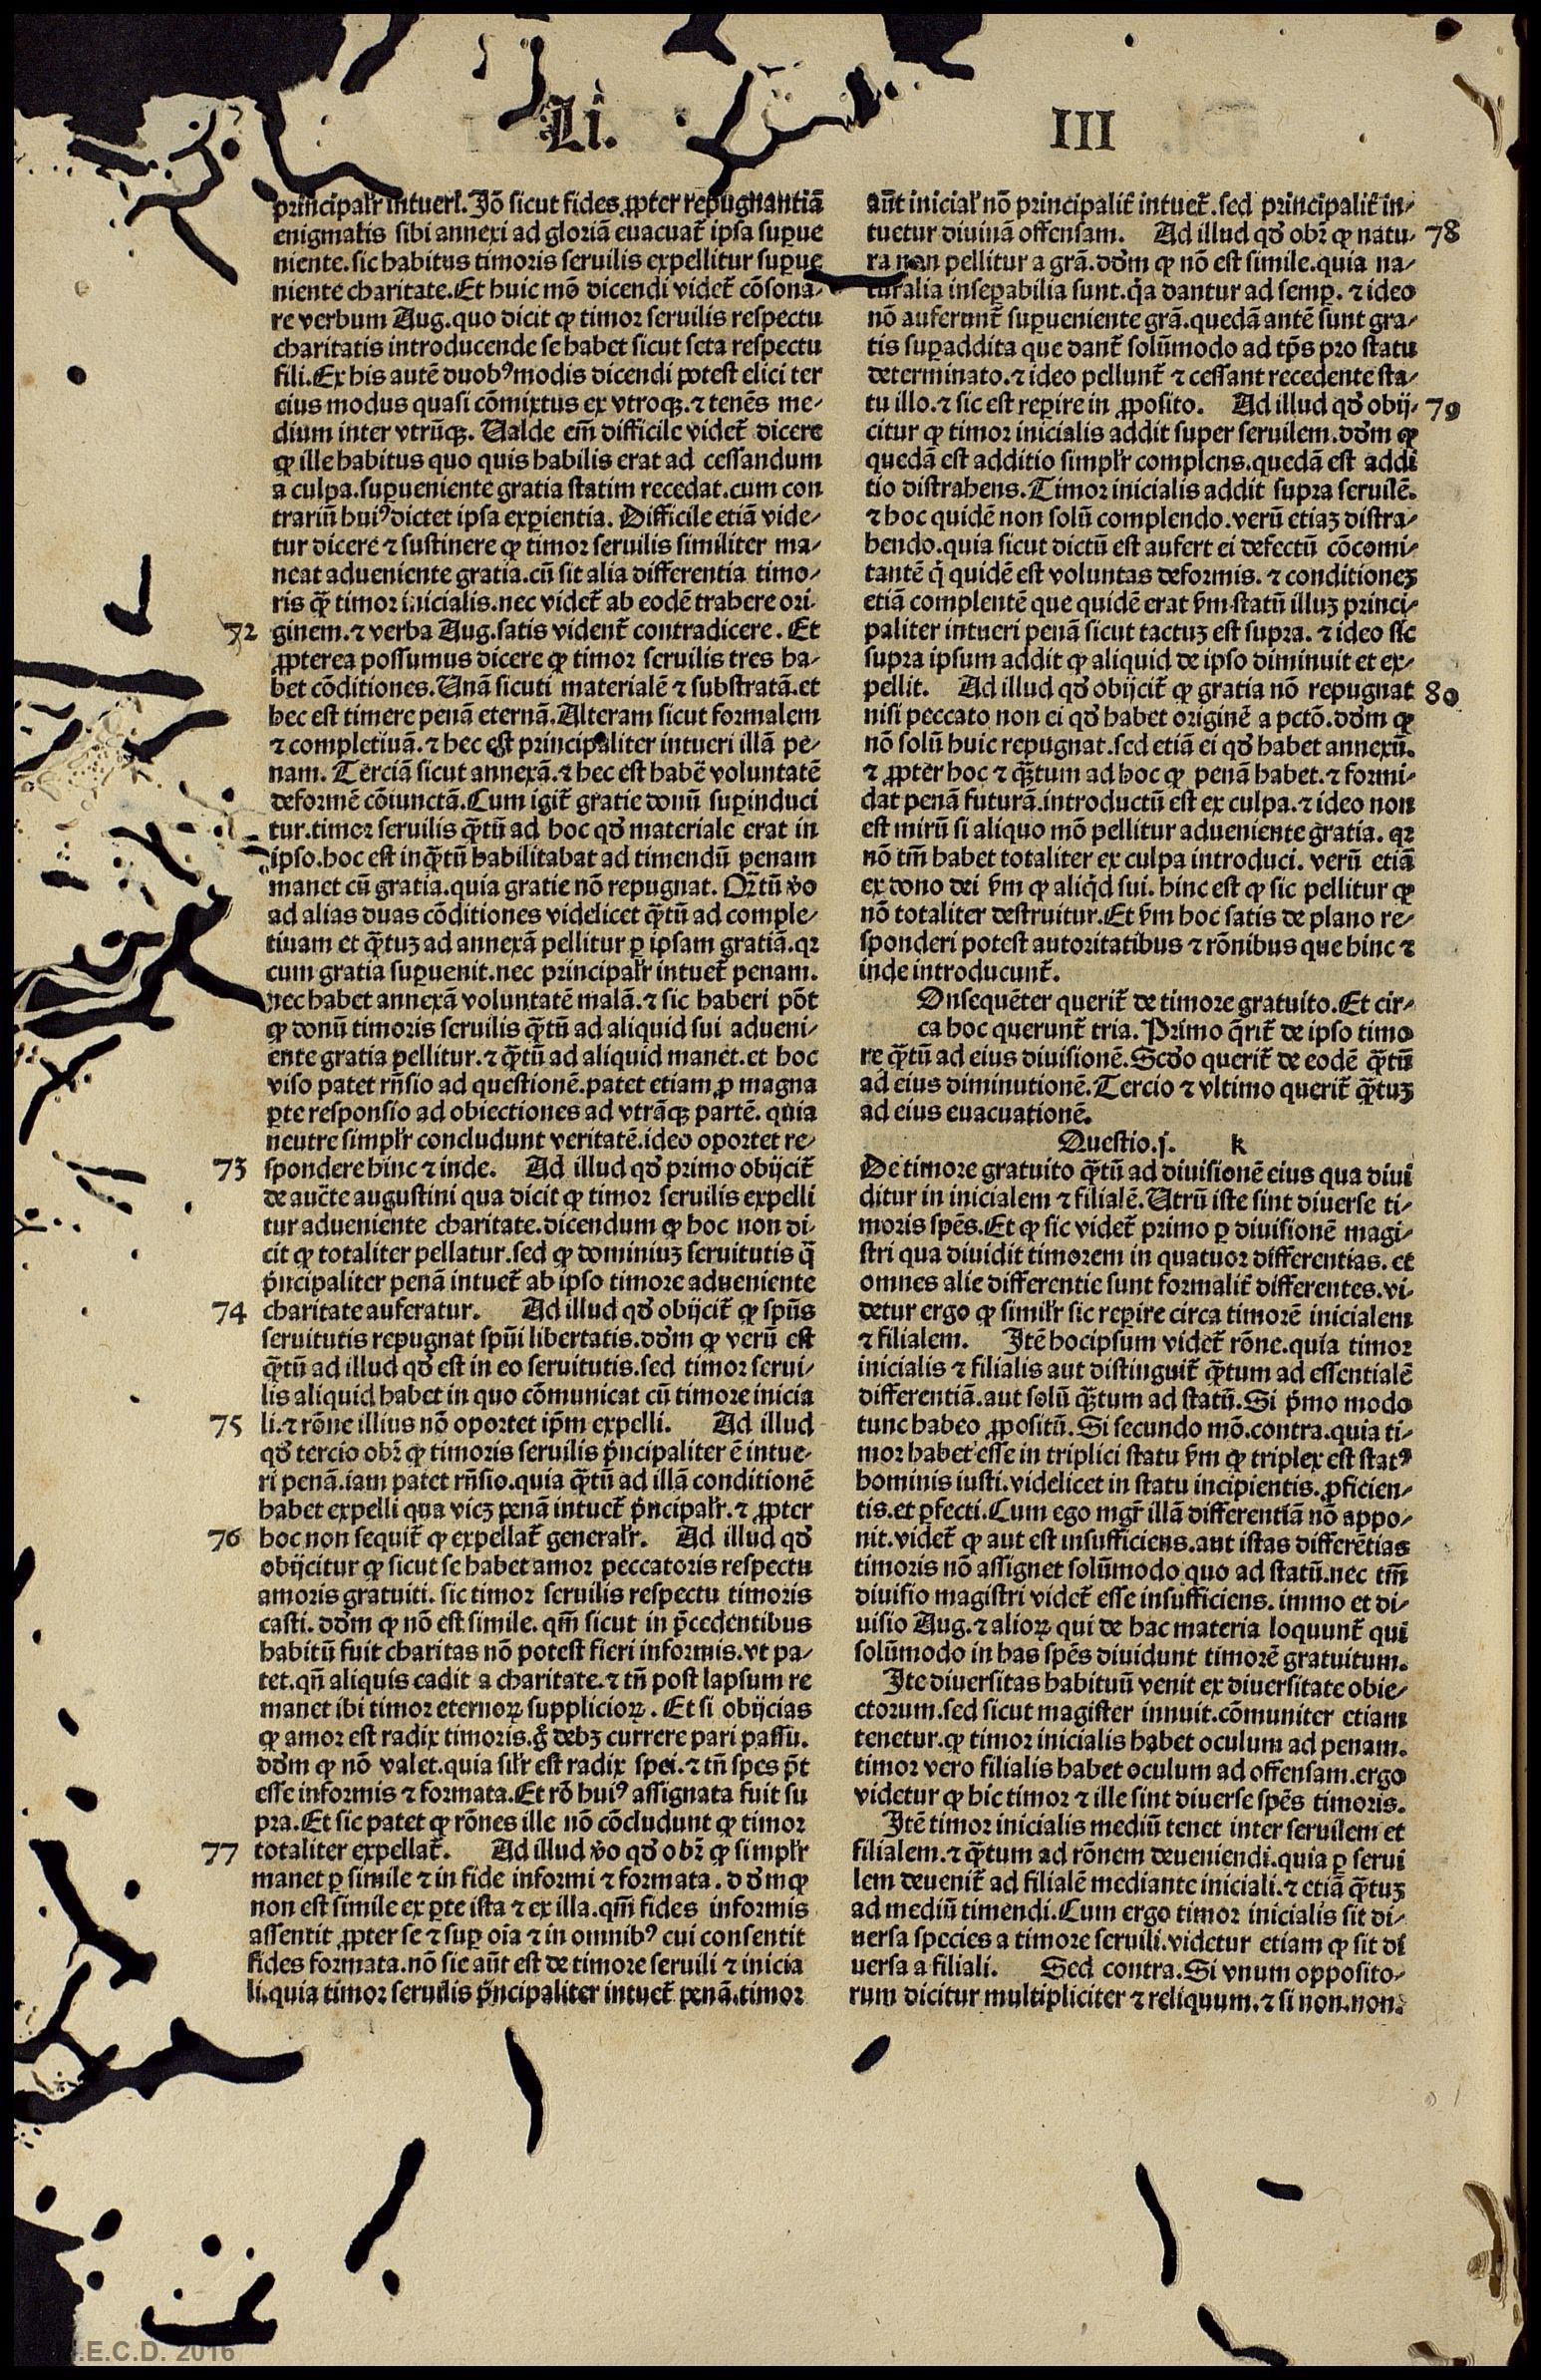 Li. III
principalr̃ intueri. Jõ sicut fides ꝓpter repugnantiã
enigmatis sibi annexi ad gloriã euacuat̃ ipsa suꝑue
niente. sic habitus timoris seruilis expellitur suꝑue
niente charitate. Et huic mõ dicendi videt̃ cõsona⸗
re verbum Aug. quo dicit ꝙ timor seruilis respectu
charitatis introducende se habet sicut seta respectu
fili. Ex his autẽ duobꝰ modis dicendi potest elici ter
cius modus quasi cõmixtus ex vtroqꝫ. ⁊ tenẽs me⸗
dium inter vtrũqꝫ. Ualde em̃ difficile videt̃ dicere
ꝙ ille habitus quo quis habilis erat ad cessandum
a culpa. suꝑueniente gratia statim recedat. cum con
trariũ huiꝰ dictet ipsa exꝑientia. Difficile etiã vide⸗
tur dicere ⁊ sustinere ꝙ timor seruilis similiter ma⸗
neat adueniente gratia. cũ sit alia differentia timo⸗
ris q̃ƺ timor inicialis. nec videt̃ ab eodẽ trahere ori⸗
72 ginem. ⁊ verba Aug. satis vident̃ contradicere. Et
ꝓpterea possumus dicere ꝙ timor seruilis tres ha⸗
bet cõditiones. Unã sicuti materialẽ ⁊ substratã. et
hec est timere penã eternã. Alteram sicut formalem
⁊ completiuã. ⁊ hec est principaliter intueri illã pe⸗
nam. Terciã sicut annexã. ⁊ hec est habẽ voluntatẽ
deformẽ cõiunctã. Cum igit̃ gratie donũ suꝑinduci
tur. timor seruilis q̃ƺtũ ad hoc qd̃ materiale erat in
ipso. hoc est inq̃ƺtũ habilitabat ad timendũ penam
manet cũ gratia. quia gratie nõ repugnat. Q̃ƺtũ v̾o
ad alias duas cõditiones videlicet q̃ƺtũ ad comple⸗
tiuam et q̃ƺtuꝫ ad annexã pellitur ꝑ ipsam gratiã. qꝛ
cum gratia suꝑuenit. nec principalr̃ intuet̃ penam.
nec habet annexã voluntatẽ malã. ⁊ sic haberi põt
ꝙ donũ timoris seruilis q̃ƺtũ ad aliquid sui adueni⸗
ente gratia pellitur. ⁊ q̃ƺtũ ad aliquid manet. et hoc
viso patet rñsio ad questionẽ. patet etiam ꝓ magna
ꝑte responsio ad obiectiones ad vtrãqꝫ partẽ. quia
neutre simplr̃ concludunt veritatẽ. ideo oportet re⸗
73 spondere hinc ⁊ inde. Ad illud qd̃ primo obijcit̃
de auẽte augustini qua dicit ꝙ timor seruilis expelli
tur adueniente charitate. dicendum ꝙ hoc non di⸗
cit ꝙ totaliter pellatur. sed ꝙ dominiuꝫ seruitutis q̃
p̃ncipaliter penã intuet̃ ab ipso timore adueniente
74 charitate auferatur. Ad illud qd̃ obijcit̃ ꝙ spũs
seruitutis repugnat spũi libertatis. dd̃m ꝙ verũ est
q̃ƺtũ ad illud qd̃ est in eo seruitutis. sed timor serui⸗
lis aliquid habet in quo cõmunicat cũ timore inicia
75 li. ⁊ rõne illius nõ oportet ip̃m expelli. Ad illud
qd̃ tercio obr̃ ꝙ timoris seruilis p̃ncipaliter ẽ intue⸗
ri penã. iam patet rñsio. quia q̃ƺtũ ad illã conditionẽ
habet expelli qua vicꝫ penã intuet̃ p̃ncipalr̃. ⁊ ꝓpter
76 hoc non sequit̃ ꝙ expellat̃ generalr̃. Ad illud qd̃
obijcitur ꝙ sicut se habet amor peccatoris respectu
amoris gratuiti. sic timor seruilis respectu timoris
casti. dd̃m ꝙ nõ est simile. qm̃ sicut in p̃cedentibus
habitũ fuit charitas nõ potest fieri informis. vt pa⸗
tet. qñ aliquis cadit a charitate. ⁊ tñ post lapsum re
manet ibi timor eternoꝝ supplicioꝝ. Et si obijcias
ꝙ amor est radix timoris. g̃ debꝫ currere pari passu.
dd̃m ꝙ nõ valet. quia silr̃ est radix spei. ⁊ tñ spes p̃t
esse informis ⁊ formata. Et rõ huiꝰ assignata fuit su
pra. Et sic patet ꝙ rõnes ille nõ cõcludunt ꝙ timor
77 totaliter expellat̃. Ad illud v̾o qd̃ obr̃ ꝙ simplr̃
manet ꝑ simile ⁊ in fide informi ⁊ formata. dd̃m ꝙ
non est simile ex ꝑte ista ⁊ ex illa. qm̃ fides informis
assentit ꝓpter se ⁊ suꝑ oĩa ⁊ in omnibꝰ cui consentit
fides formata. nõ sic aũt est de timore seruili ⁊ inicia
li. quia timor seruilis p̃ncipaliter intuet̃ penã. timor
aũt inicialr̃ nõ principalit̃ intuet̃. sed principalit̃ in⸗
tuetur diuinã offensam. Ad illud qd̃ obr̃ ꝙ natu⸗ 78
ra non pellitur a grã. dd̃m ꝙ nõ est simile. quia na⸗
turalia inseꝑabilia sunt. q̃a dantur ad semꝑ. ⁊ ideo
nõ auferunt̃ suꝑueniente grã. quedã antẽ sunt gra⸗
tis suꝑaddita que dant̃ solũmodo ad tp̃s pro statu
determinato. ⁊ ideo pellunt̃ ⁊ cessant recedente sta⸗
tu illo. ⁊ sic est reꝑire in ꝓposito. Ad illud qd̃ obij⸗ 79
citur ꝙ timor inicialis addit super seruilem. dd̃m ꝙ
quedã est additio simplr̃ complens. quedã est addi
tio distrahens. Timor inicialis addit supra seruilẽ.
⁊ hoc quidẽ non solũ complendo. verũ etiaꝫ distra⸗
hendo. quia sicut dictũ est aufert ei defectũ cõcomi⸗
tantẽ q̃ quidẽ est voluntas deformis. ⁊ conditioneꝫ
etiã complentẽ que quidẽ erat ẜm statũ illuꝫ princi⸗
paliter intueri penã sicut tactuꝫ est supra. ⁊ ideo sic
supra ipsum addit ꝙ aliquid de ipso diminuit et ex⸗
pellit. Ad illud qd̃ obijcit̃ ꝙ gratia nõ repugnat 80
nisi peccato non ei qd̃ habet originẽ a pctõ. dd̃m ꝙ
nõ solũ huic repugnat. sed etiã ei qd̃ habet annexũ.
⁊ ꝓpter hoc ⁊ q̃ƺtum ad hoc ꝙ penã habet. ⁊ formi⸗
dat penã futurã. introductũ est ex culpa. ⁊ ideo non
est mirũ si aliquo mõ pellitur adueniente gratia. qꝛ
nõ tm̃ habet totaliter ex culpa introduci. verũ etiã
ex dono dei ẜm ꝙ aliq̃d sui. hinc est ꝙ sic pellitur ꝙ
nõ totaliter destruitur. Et ẜm hoc satis de plano re⸗
sponderi potest autoritatibus ⁊ rõnibus que hinc ⁊
inde introducunt̃.
Onsequẽter querit̃ de timore gratuito. Et cir⸗
ca hoc querunt̃ tria. Primo q̃rit̃ de ipso timo
re q̃ƺtũ ad eius diuisionẽ. Scd̃o querit̃ de eodẽ q̃ƺtũ
ad eius diminutionẽ. Tercio ⁊ vltimo querit̃ q̃ƺtuꝫ
ad eius euacuationẽ.
Questio.j. k
De timore gratuito q̃ƺtũ ad diuisionẽ eius qua diui
ditur in inicialem ⁊ filialẽ. Utrũ iste sint diuerse ti⸗
moris spẽs. Et ꝙ sic videt̃ primo ꝑ diuisionẽ magi⸗
stri qua diuidit timorem in quatuor differentias. et
omnes alie differentie sunt formalit̃ differentes. vi⸗
detur ergo ꝙ similr̃ sic reꝑire circa timorẽ inicialem
⁊ filialem. Jtẽ hocipsum videt̃ rõne. quia timor
inicialis ⁊ filialis aut distinguit̃ q̃ƺtum ad essentialẽ
differentiã. aut solũ q̃ƺtum ad statũ. Si p̃mo modo
tunc habeo ꝓpositũ. Si secundo mõ. contra. quia ti⸗
mor habet esse in triplici statu ẜm ꝙ triplex est statꝰ
hominis iusti. videlicet in statu incipientis. ꝓficien⸗
tis. et ꝑfecti. Cum ego mgr̃ illã differentiã nõ appo⸗
nit. videt̃ ꝙ aut est insufficiens. aut istas differẽtias
timoris nõ assignet solũmodo quo ad statũ. nec tm̃
diuisio magistri videt̃ esse insufficiens. immo et di⸗
uisio Aug. ⁊ alioꝝ qui de hac materia loquunt̃ qui
solũmodo in has spẽs diuidunt timorẽ gratuitum.
Jte diuersitas habituũ venit ex diuersitate obie⸗
ctorum. sed sicut magister innuit. cõmuniter etiam
tenetur. ꝙ timor inicialis habet oculum ad penam.
timor vero filialis habet oculum ad offensam. ergo
videtur ꝙ hic timor ⁊ ille sint diuerse spẽs timoris.
Jtẽ timor inicialis mediũ tenet inter seruilem et
filialem. ⁊ q̃ƺtum ad rõnem deueniendi. quia ꝑ serui
lem deuenit̃ ad filialẽ mediante iniciali. ⁊ etiã q̃ƺtuꝫ
ad mediũ timendi. Cum ergo timor inicialis sit di⸗
uersa species a timore seruili. videtur etiam ꝙ sit di
uersa a filiali. Sed contra. Si vnum opposito⸗
rum dicitur multipliciter ⁊ reliquum. ⁊ si non. non.
I.E.C.D. 2016